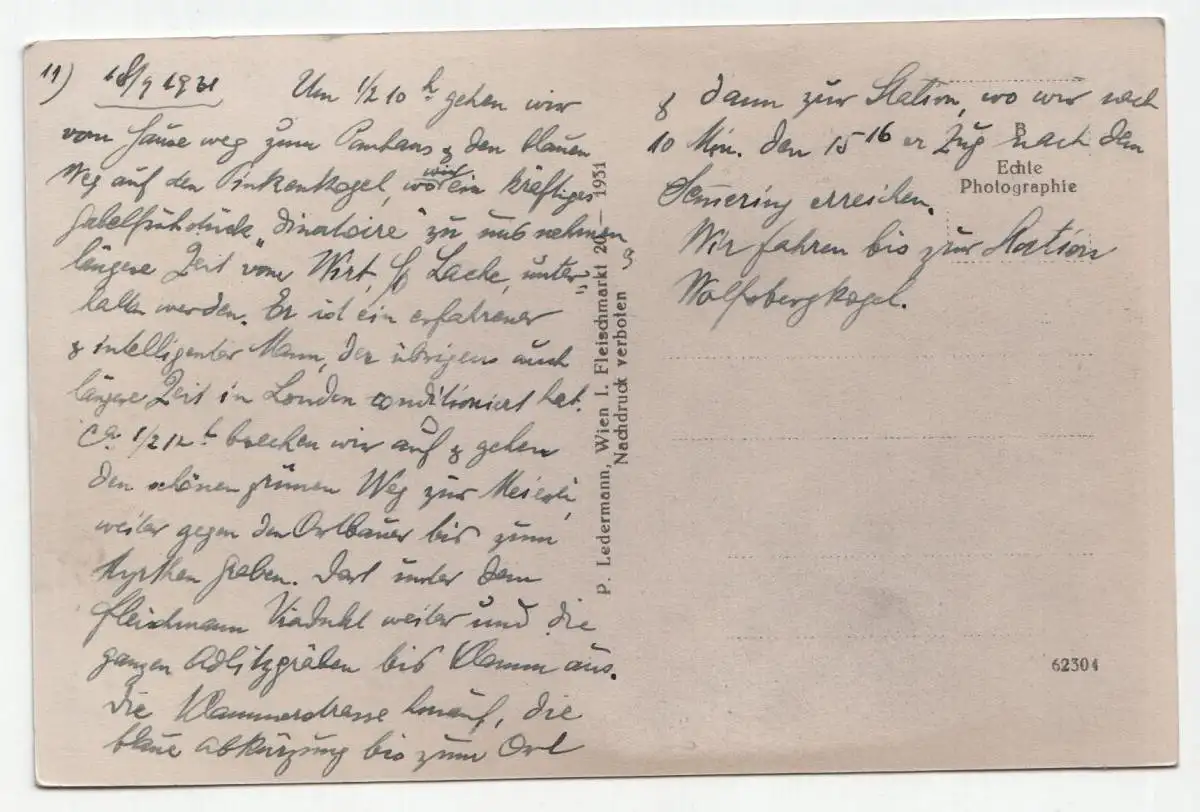 11) 18/9 1931 Um 1/2 10 h gehen wir
vom Hause weg zum Panhans & den blauen
Weg auf den Pinkenkogel, wo wir ein kräftiges
Gabelfrühstück „dinatoire" zu uns nehmen &
längere Zeit vom Wirt, H Lacke, unter-
halten werden. Er ist ein erfahrener
& intelligenter Mann, der übrigens auch
längere Zeit in London conditioniert hat.
Ca 1/2 12 h brechen wir auf & gehen
den schönen grünen Weg zur Meierei,
weiter gegen den Orlbauer bis zum
Myrthen Graben. Dort unter dem
Fleischmann Viadukt weiter und die
ganzen Adlitzgräben bis Klamm aus.
Die Klammerstrasse hinauf, die
blaue Abkürzung bis zum Ort
& dann zur Station, wo wir nach
10 Min. den 15 16 er Zug nach dem
Semering erreichen.
Wir fahren bis zur Station
Wolfsbergkogel.
P. Ledermann, Wien I. Fleischmarkt 20 — 1931
Nachdruck verboten
B
Echte
Photographie
62304